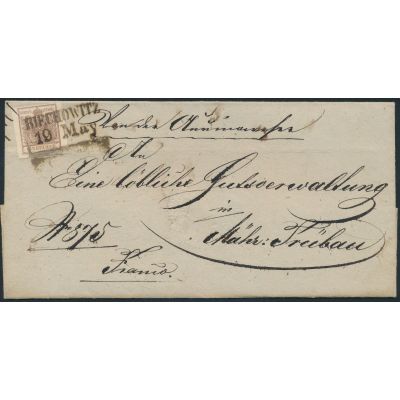 BIECHOWITZ
19 May
Von der
An
Eine löbliche Gutsverwaltung
in
Mähr: Trübau
No 875
Franco.